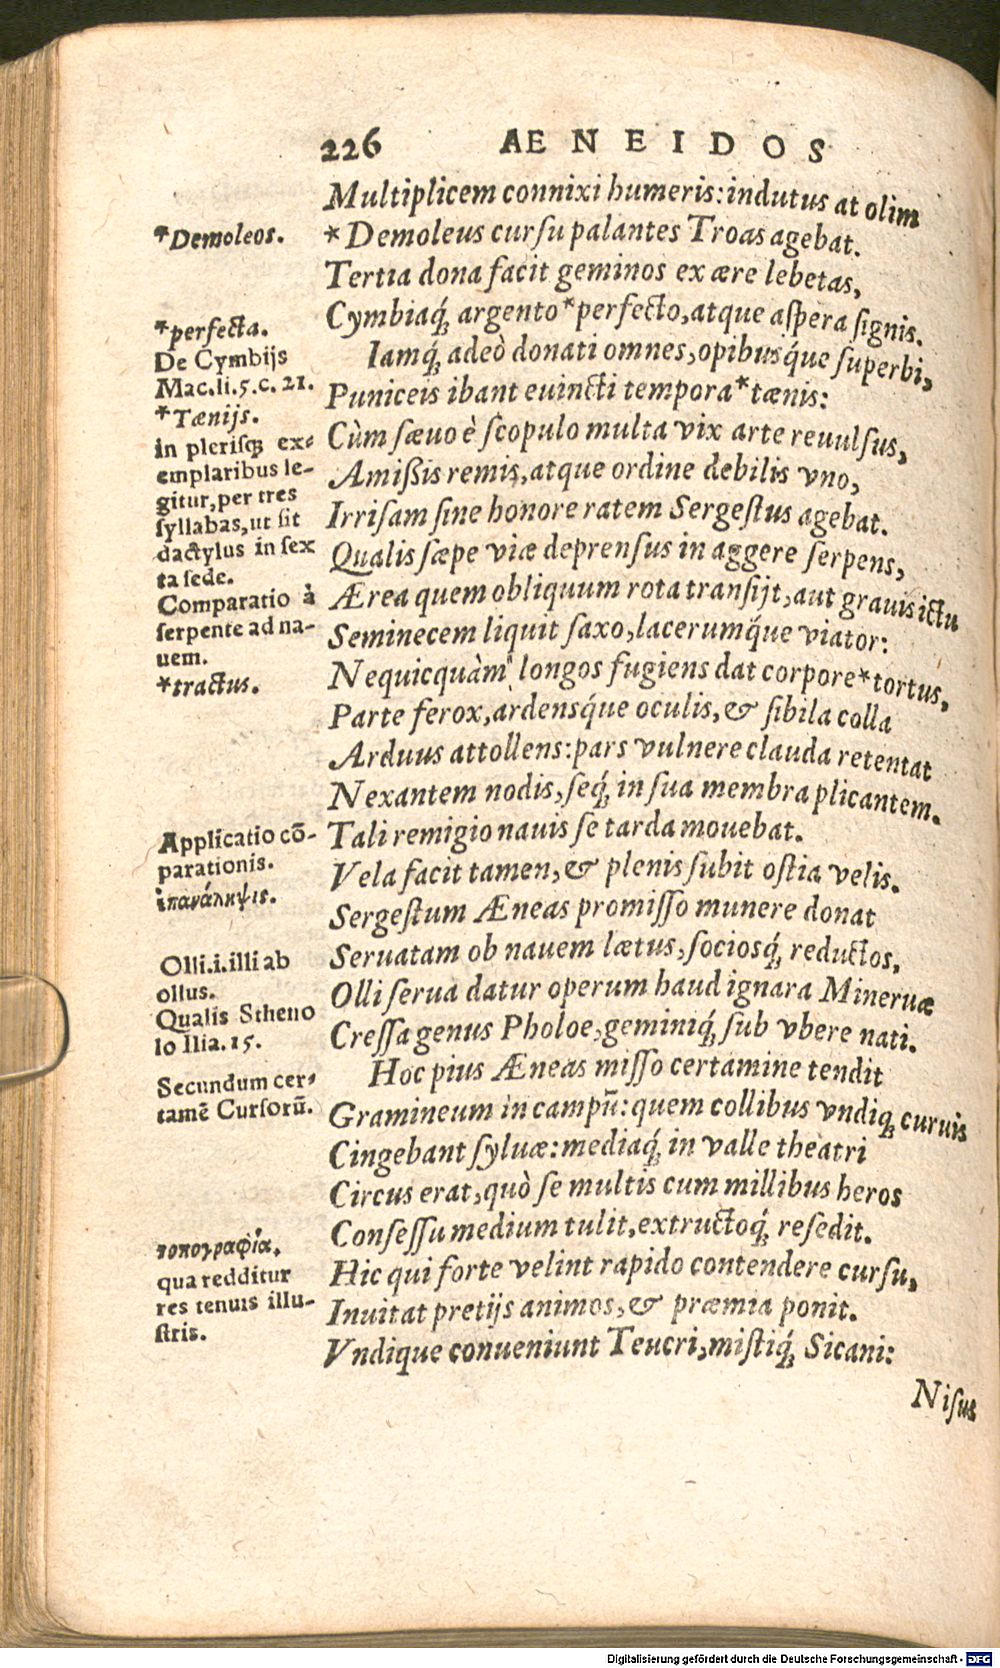 226 AENEIDOS
Multiplicem connixi humeris: indutus at olim
*Demoleos.
*Demoleus curſu palantes Troas agebat.
Tertia dona facit geminos ex ære lebetas,
Cymbiaq́; argento *perfecto, atque aſpera ſignis.
*perfecta.
De Cymbijs
Mac. li. 5. c. 21.
Iamq́; adeò donati omnes, opibusq́ue ſuperbi,
Puniceis ibant euincti tempora *tænis:
*Tænijs.
in pleriſq; ex-
emplaribus le-
gitur, per tres
ſyllabas, ut ſit
dactylus in ſex
ta ſede.
Cùm ſæuo è ſcopulo multa vix arte reuulſus,
Amißis remis, atque ordine debilis vno,
Irriſam ſine honore ratem Sergeſtus agebat.
Qualis ſæpe viæ deprenſus in aggere ſerpens,
Comparatio à
ſerpente ad na-
uem.
Ærea quem obliquum rota tranſijt, aut grauis ictu
Seminecem liquit ſaxo, lacerumq́ue viator:
Nequicquàm longos fugiens dat corpore *tortus,
*tractus.
Parte ferox, ardensq́ue oculis, & ſibila colla
Arduus attollens: pars vulnere clauda retentat
Nexantem nodis, ſeq́; in ſua membra plicantem.
Applicatio cō-
parationis.
Tali remigio nauis ſe tarda mouebat.
Vela facit tamen, & plenis ſubit oſtia velis.
ἐπανάληψις.
Sergeſtum Æneas promiſſo munere donat
Seruatam ob nauem lætus, ſociosq́; reductos,
Olli .i. illi ab
ollus.
Olli ſerua datur operum haud ignara Mineruæ
Qualis Stheno
lo Ilia. 15.
Creſſa genus Pholoe, geminiq́; ſub vbere nati.
Hoc pius Æneas miſſo certamine tendit
Secundum cer-
tamē Curſorū.
Gramineum in campū: quem collibus vndiq; curuis
Cingebant ſyluæ: mediaq́; in valle theatri
Circus erat, quò ſe multis cum millibus heros
Conſeſſu medium tulit, extructoq́; reſedit.
τοπογραφία,
qua redditur
res tenuis illu-
ſtris.
Hic qui forte velint rapido contendere curſu,
Inuitat pretijs animos, & præmia ponit.
Vndique conueniunt Teucri, miſtiq́; Sicani:
Niſus
Digitalisierung gefördert durch die Deutsche Forschungsgemeinschaft - DFG